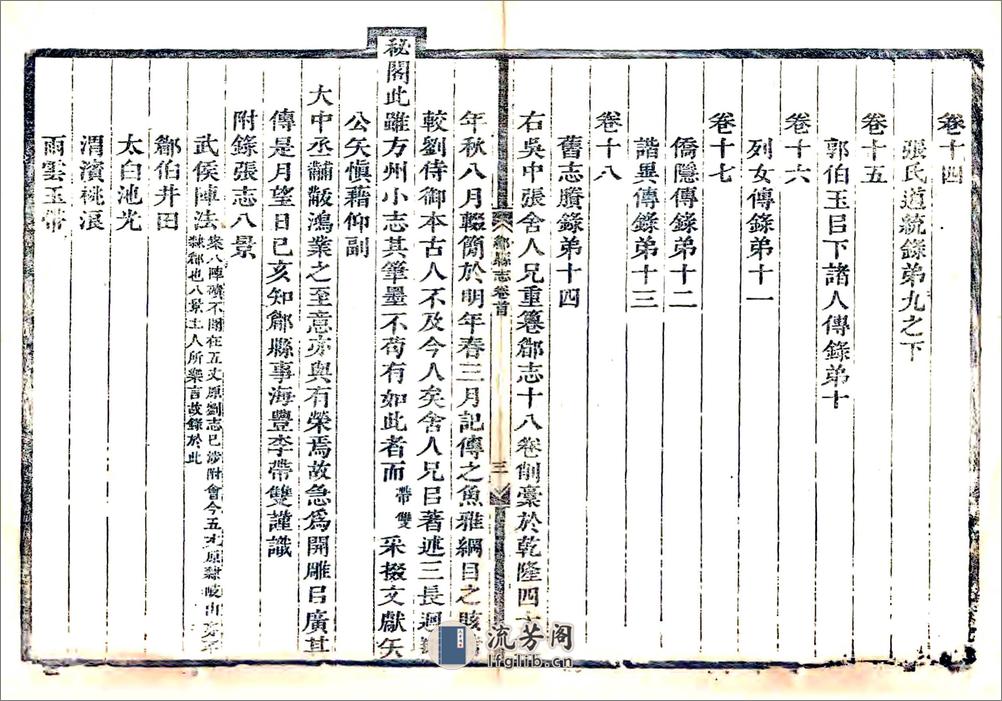 卷十四
張氏道統錄弟九之下
卷十五
郭伯玉㠯下諸人傳錄弟十
卷十六
列女傳錄弟十一
卷十七
僑隱傳錄弟十二
諧異傳錄弟十三
卷十八
舊志賸錄弟十四
右吳中張舍人兄重纂郿志十八卷削稾於乾隆四
郿縣志卷首
三
年秋八月輟簡於明年春三月記傳之魚雅綱目之賅
較劉侍御本古人不及今人矣舍人兄㠯著述三長迥
秘閣此雖方州小志其筆墨不苟有如此者而帶雙采掇文獻矢
公矢慎藉仰副
大中丞黼黻鴻業之至意亦與有榮焉故急為開雕㠯廣其
傳是月望日己亥知郿縣事海豐李帶雙謹識
附錄張志八景
武侯陣法案八陣磧不聞在五丈原劉志已涉附會今五丈原隸岐山亦不
隸郿也八景土人所樂言故錄於此
郿伯井田
太白池光
渭濱桃浪
雨雲玉帶
流芳阁
lfglib.cn